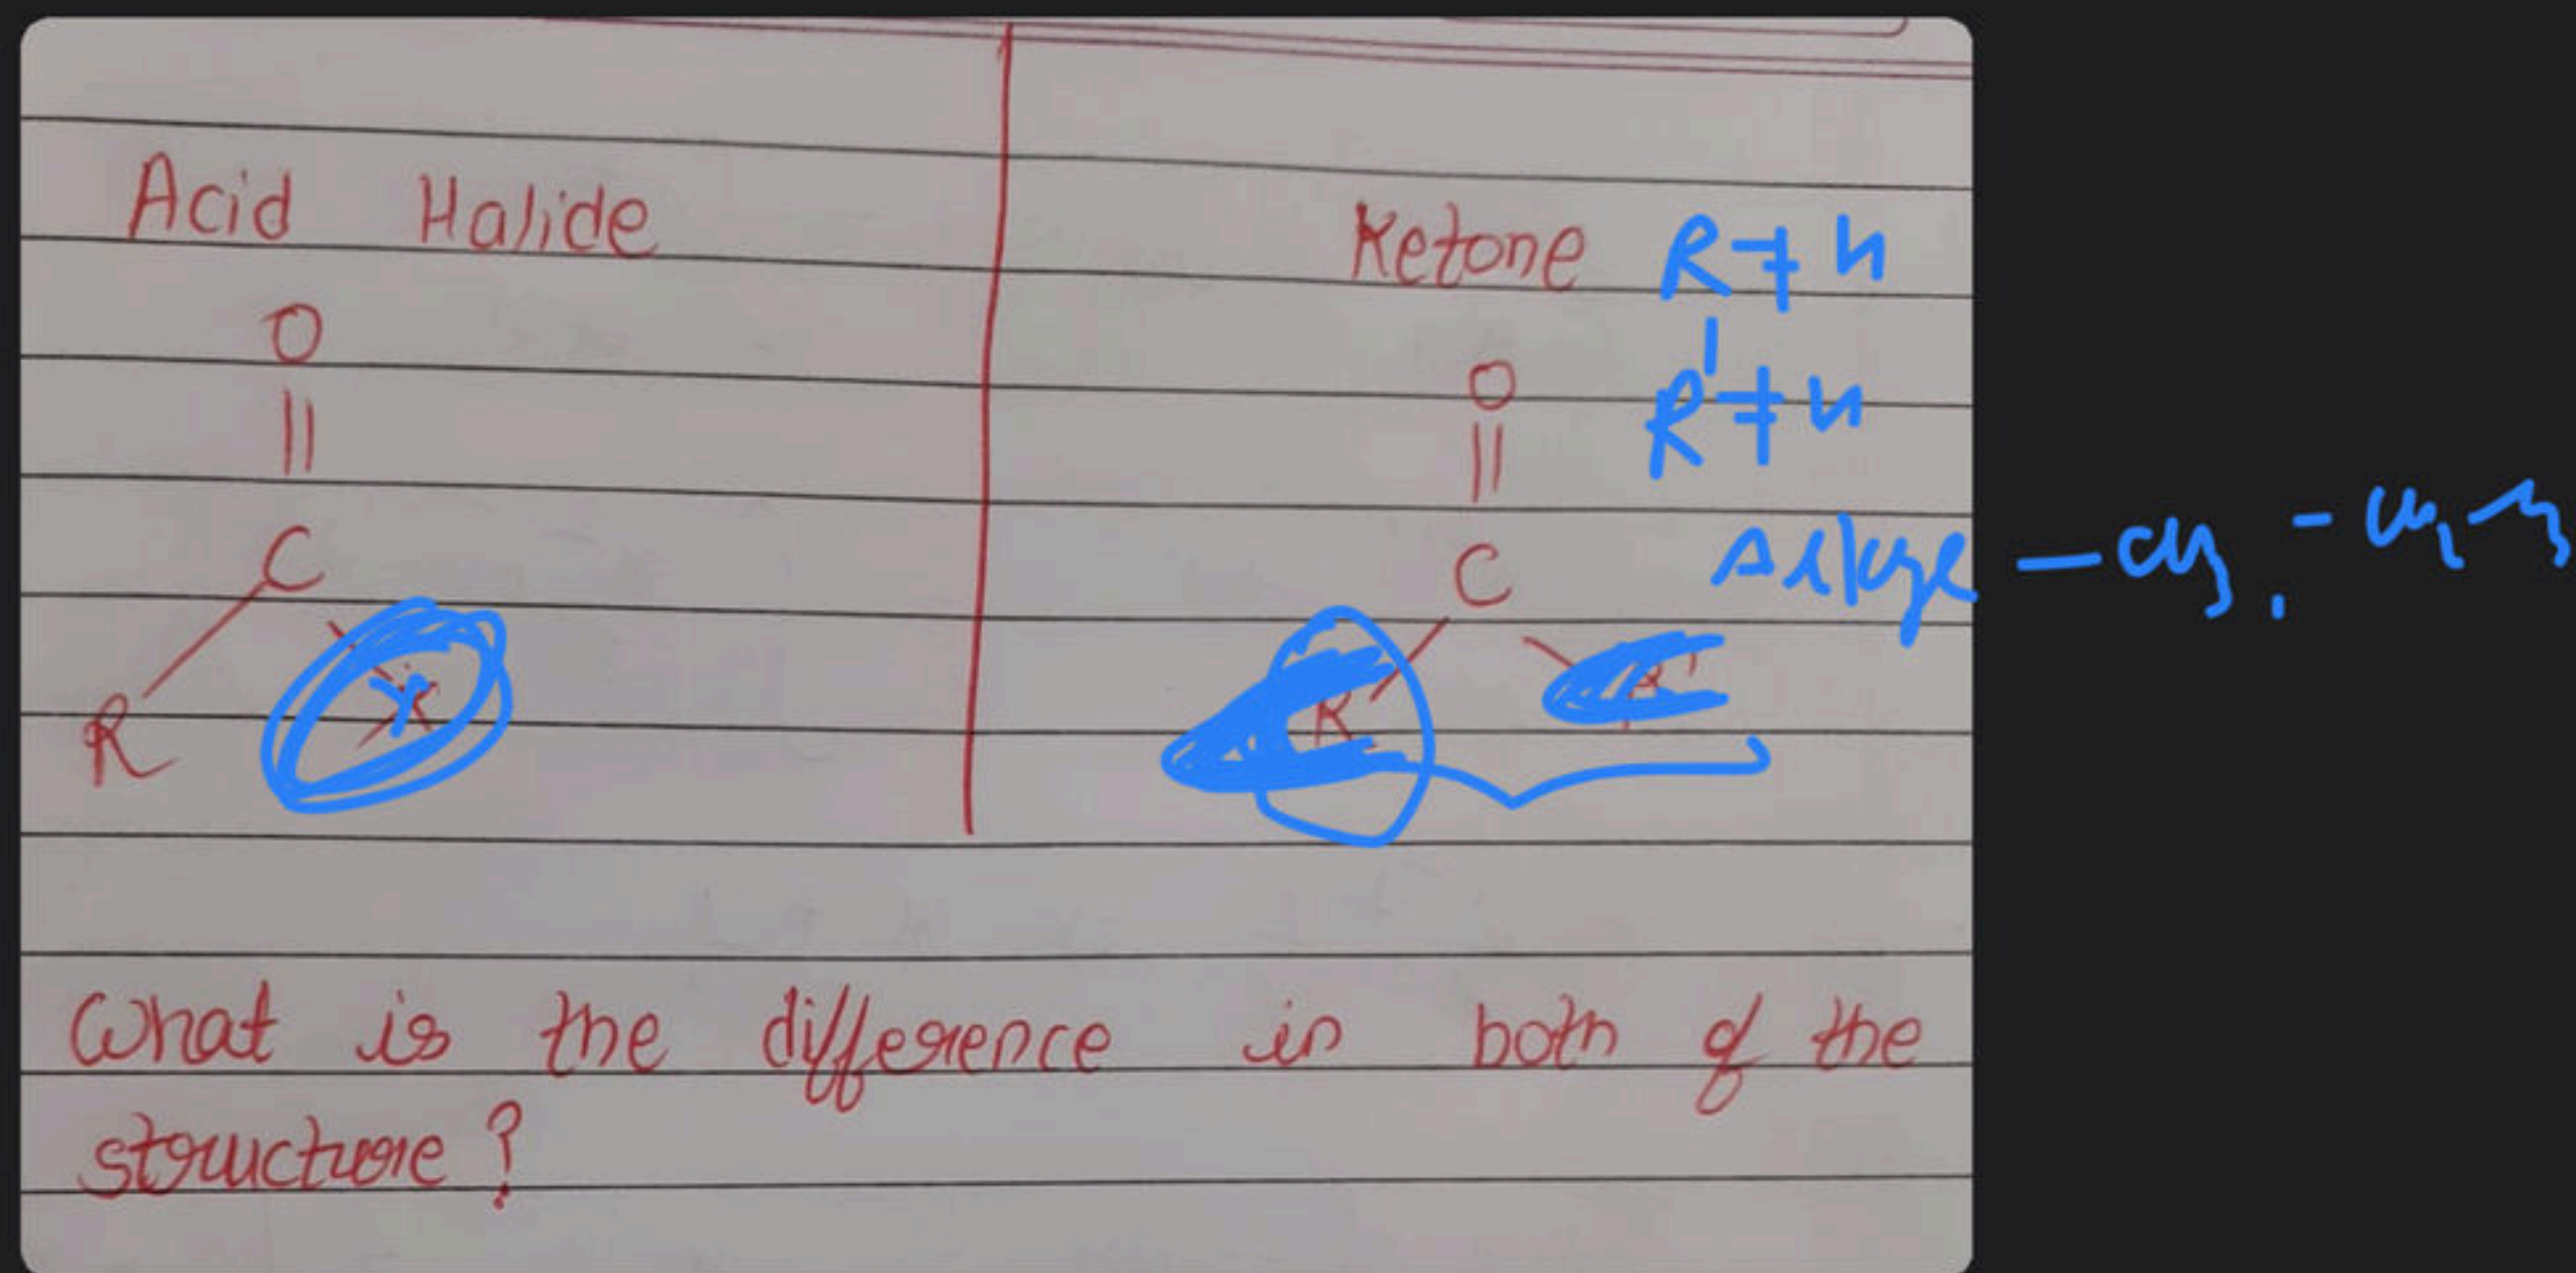 Acid Halide
Ketone R ≠ H
R' ≠ H
O
||
C
R X
O
||
C
R R'
Alkyl - CH3, -
What is the difference in both of the
structure?